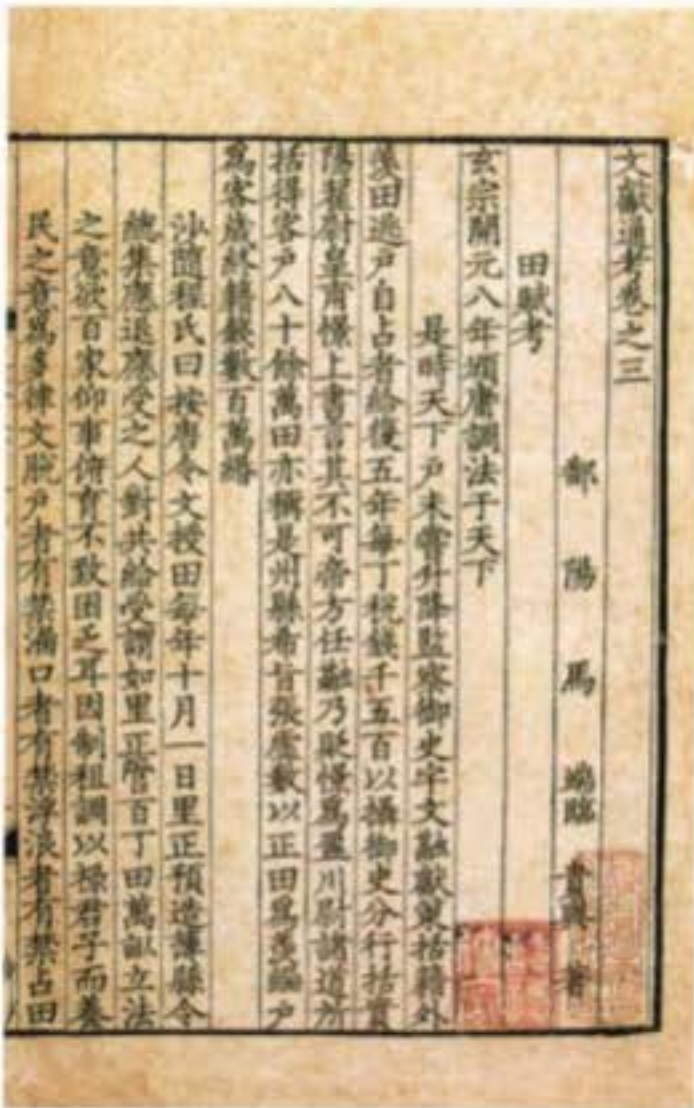 文獻通考卷之三
鄱陽馬端臨貴與著
田賦考
玄宗開元八年頒庸調法于天下
是時天下戶未嘗升降監察御史宇文融獻策括籍外
羨田逃戶自占者給復五年每丁稅錢千五百以攝御史分行括實
陽翟尉皇甫憬上書言其不可帝方任融乃貶憬為盈川尉諸道所
括得客戶八十餘萬田亦稱是州縣希旨張虛數以正田為羨編戶
為客歲終籍錢數百萬緡
沙隨程氏曰按唐令文授田每年十月一日里正預造簿縣令
總集應退應受之人對共給受謂如里正管百丁田萬畝立法
之意欲百家仰事俯育不致困乏耳因制租調以祿君子而養
民之意為多律文脫戶者有禁漏口者有禁浮浪者有禁占田